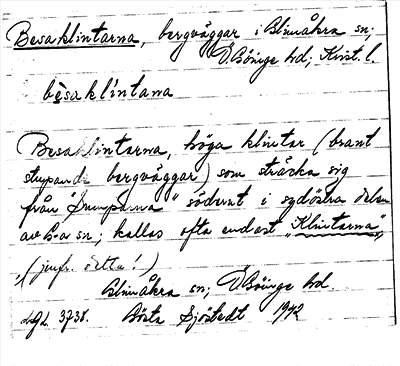 Besaklintarna, bergväggar i Blinåkra sn;
Ö. Göinge hd; Krist. l.
bèsaklíntana
Besaklintarna, höga klintar (brant
stupande bergväggar) som sträcka sig
från söderut i sydöstra delen
av G-a sn; kallas ofta endast "Klintarna",
(jmfr. detta!)
Glimåkra sn; Ö Göinge hd.
LGL 3738. Gösta Sjöstedt 1942